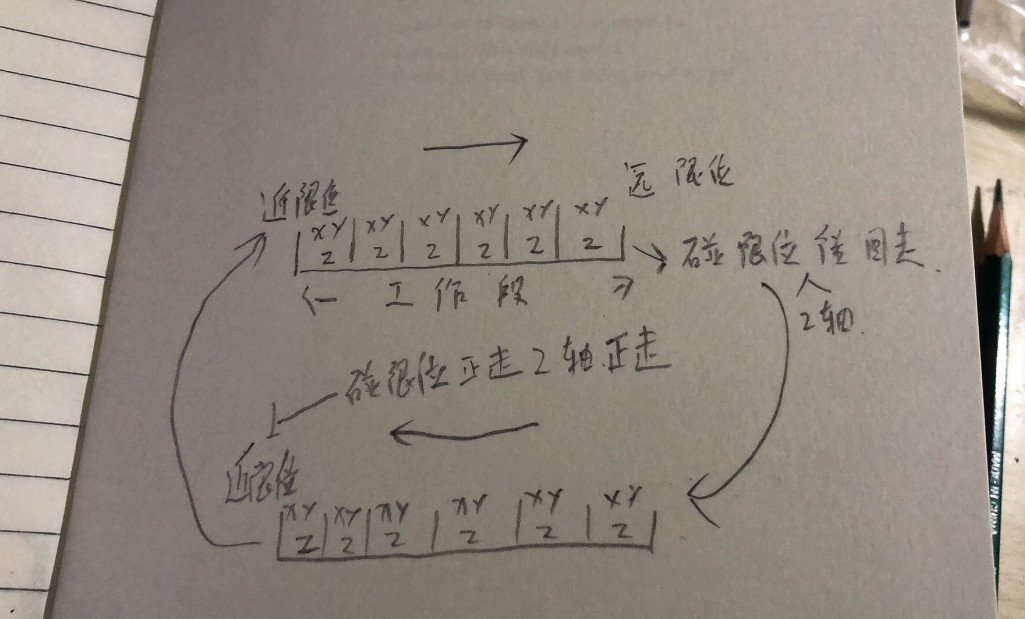 近限位
远限位
XY XY XY XY XY XY
Z Z Z Z Z Z
工作段
碰限位往回走.
Z轴.
碰限位正走Z轴正走
近限位
XY XY XY XY XY XY
Z Z Z Z Z Z
MADE IN CHINA